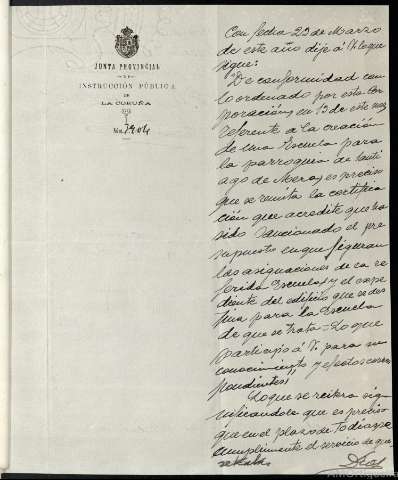 JUNTA PROVINCIAL
DE
INSTRUCCIÓN PÚBLICA
DE
LA CORUÑA
Núm. 7904
Con fecha 23 de Marzo
de este año dije á V. lo que
sigue:
"De conformidad con
lo ordenado por esta Cor
poración, en 13 de este mes,
referente a la creación
de una Escuela para
la parroquia de Santi
ago de Mera, es preciso
que se remita la certifica
ción que acredite que ha
sido sancionado el pre
supuesto en que figuran
las asignaciones de la re
ferida Escuela, y el expe
diente del edificio que se des
tina para la Escuela
de que se trata = Lo que
participo á V. para su
conocimiento y efectos corres
pondientes"
Lo que se reitera sig
nificándole que es preciso
que en el plazo de
cumplimente el servicio de que
se trata. Dios